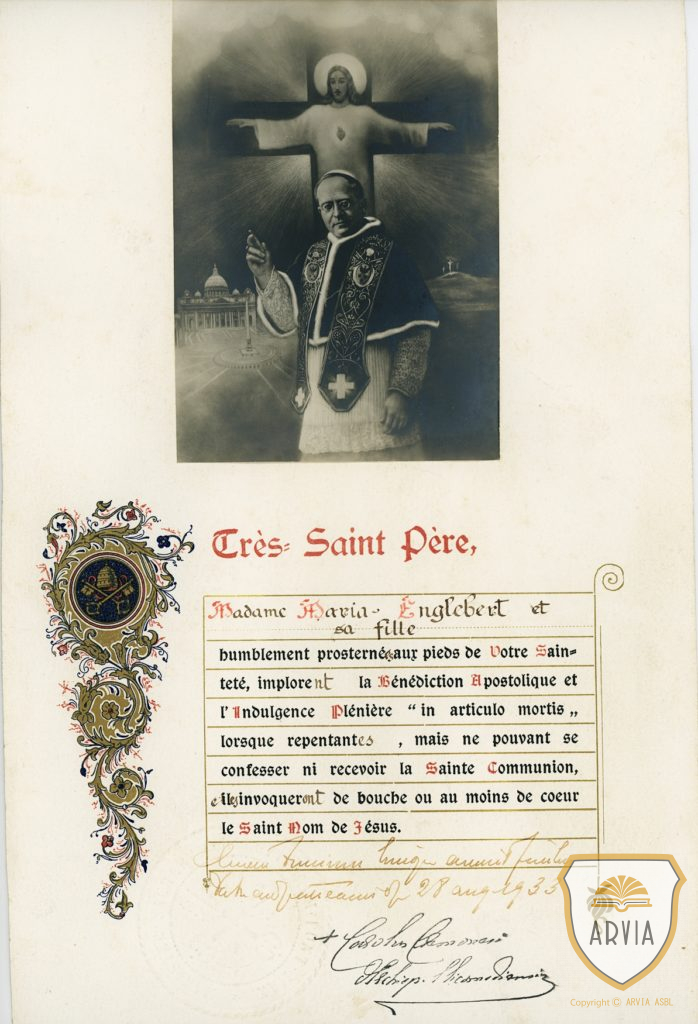 Très-Saint Père,
Madame Maria-Englebert et
sa fille
humblement prosternées aux pieds de Votre Sain-
teté, implorent la Bénédiction Apostolique et
l'Indulgence Plénière “in articulo mortis„
lorsque repentantes, mais ne pouvant se
confesser ni recevoir la Sainte Communion,
elles invoqueront de bouche ou au moins de coeur
le Saint Nom de Jésus.
28 aug 1933
ARVIA
Copyright © ARVIA ASBL